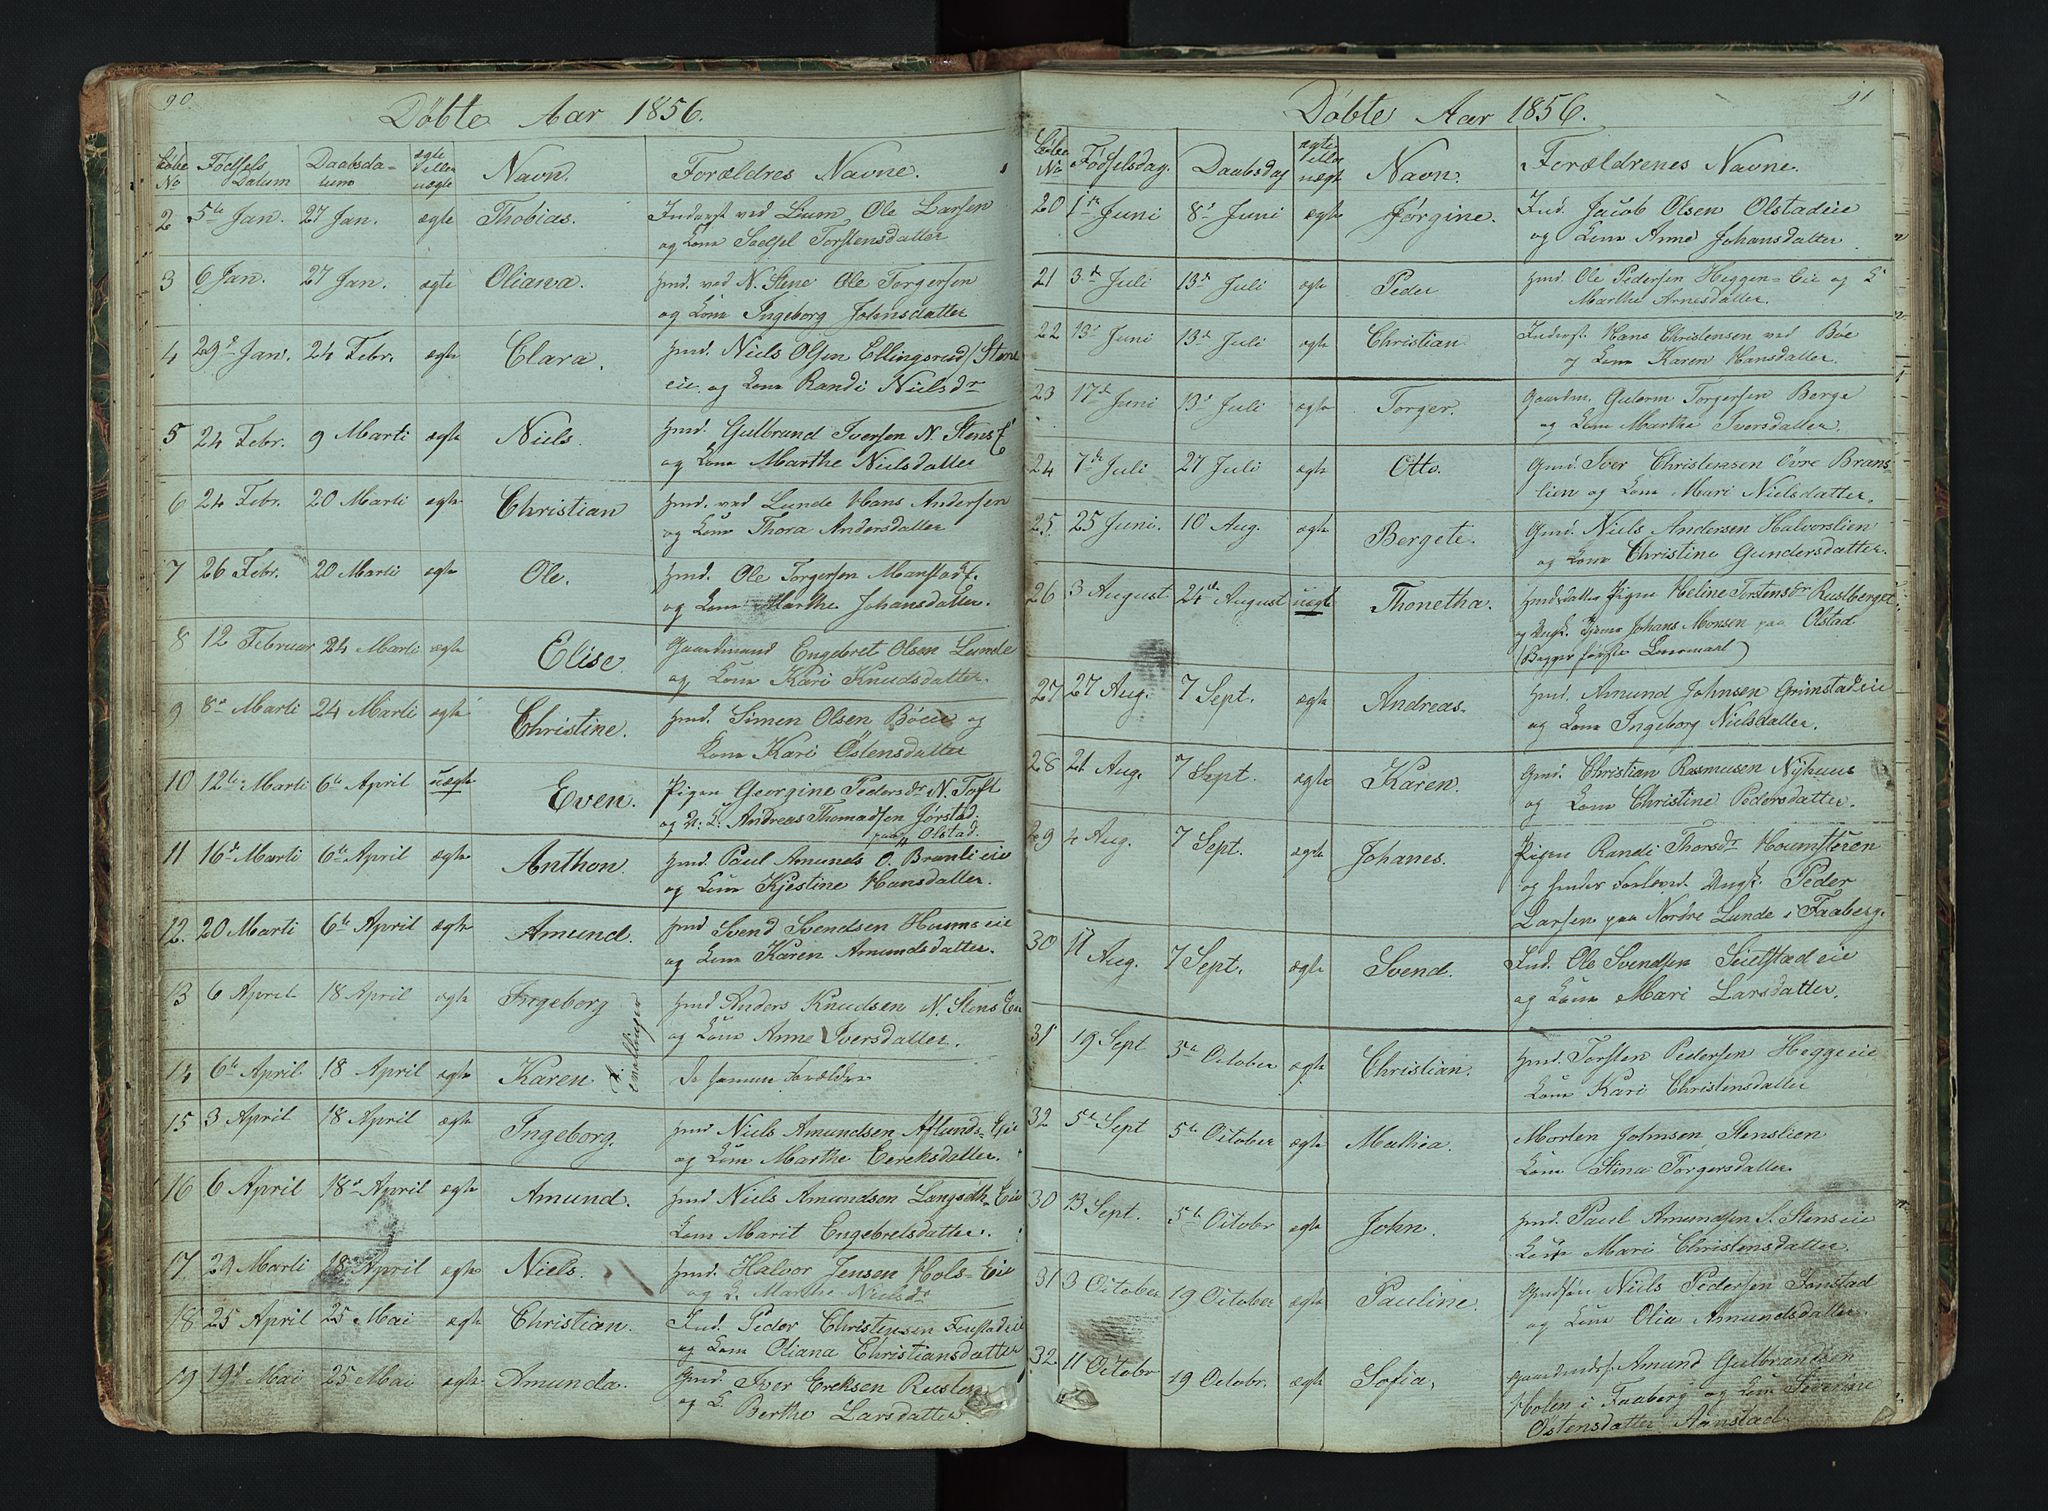 90
Döbte Aar 1856.
Löbe No Födsels Datum Daabsdatum ægte eller uægte Navn. Forældres Navne.
2 5te Jan. 27 Jan. ægte Thobias. Inderst ved Lium, Ole Larsen
og Kone Torstensdatter
3 6 Jan. 27 Jan. ægte Oliana. Hmd. ved N. Stene Ole Torgersen
og Kone Ingeborg Johnsdatter
4 29d Jan. 24 Febr. ægte Clara. Hmd. Niels Olsen Ellingsrud / Stene
eie. og Kone Randi Nielsdr
5 24 Febr. 9 Marti ægte Niels. Hmd. Gulbrand Iversen N. Stens E
og Kone Marthe Nielsdatter
6 24 Febr. 20 Marti ægte Christian Hmd. ved Lunde Hans Andersen
og Kone Thora Andersdatter
7 26 Febr. 20 Marti ægte Ole. Hmd. Ole Torgersen
og Kone Marthe Johansdatter.
8 12 Februar 24 Marti ægte Elise. Gaardmand Engebret Olsen Lunde
og Kone Kari Knudsdatter.
9 8de Marti 24 Marti ægte Christine. Hmd. Simen Olsen Böeie og
Kone Kari Östensdatter
10 12te Marti 6te April uægte Even. Pigen Georgine Pedersdr N. Toft
og U. K. Andreas Thomadsen Jörstad.
paa Olstad.
11 16d Marti 6te April ægte Anthon. Hmd. Paul Amunds O. Branlieie
og Kone Kjestine Hansdatter.
12. 20 Marti 6te April ægte Amund. Hmd Svend Svendsen Houmseie
og Kone Karen Amundsdatter.
13 6 April 18 April ægte Ingeborg Hmd Anders Knudsen N. Stens Eie
og Kone Anne Iversdatter.
Tvillinger
14 6te April 18 April ægte Karen De samme Forældre
15 3 April 18 April ægte Ingeborg. Hmd Niels Amundsen Aflunds-Eie
og Kone Marthe Eereksdatter.
16 6 April 18de April ægte Amund. Hmd Niels Amundsen Langseth-Eie
Kone Marit Engebretsdatter.
17. 29 Marti 18de April ægte Niels. Hmd. Halvor Jensen Hols-Eie
og K. Marthe Nielsdr
18 25 April 25 Mai ægte Christian. Ind. Peder Christensen
og Kone Oliana Christiansdatter
19 19d Mai 25 Mai ægte Amunda. Gmd. Iver Ereksen Rusten
og K. Berthe Larsdatter.
91
Döbte Aar 1856.
Löbe No Födselsdag. Daabsdag ægte eller uægte Navn. Forældrenes Navne.
20 1te Juni 8d Juni ægte Jörgine. Ind. Jacob Olsen Olstadeie
og Kone Anne Johansdatter
21 3de Juli 13de Juli ægte Peder Hmd. Ole Pedersen Heggen-Eie og K
Marthe Arnesdatter.
22 13d Juni 13de Juli ægte Christian Inderst Hans Christensen ved Böe
og Kone Karen Hansdatter.
23 17de Juni 13d Juli ægte Torger. Gaardm. Gutorm Torgersen Berge
og Kone Marthe Iversdatter.
24 7de Juli 27 Juli ægte Otto. Gmd. Iver Christensen Övre Bræns-
lien og Kone Mari Nielsdatter.
25. 25 Juni. 10 Aug. ægte Bergete. Gmd. Niels Andersen Halvorslien
og Kone Christine Gundersdatter.
26 3 August 24de August uægte Thonetha. Hmdsdatter Pigen Heline Torstensdr Rustberget
og Ungk. Johans Monsen paa Olstad
(Begges förste Leiermaal)
27 27 Aug. 7 Sept. ægte Andreas. Hmd. Amund Johnsen Grimstadeie
og Kone Ingeborg Nielsdatter.
28 21 Aug. 7 Sept. ægte Karen. Gmd. Christian Rasmusen Nyhuus
og Kone Christine Pedersdatter.
29 4 Aug. 7 Sept. ægte Johanes. Pigen Randi Thorsdr
og hendes Forlovd. Ungk. Peder
Larsen paa Nordre Lunde i Faaberg.
30 17 Aug. 7 Sept. ægte Svend. Ind. Ole Svendsen Seielstadeie
og Kone Mari Larsdatter.
31 19 Sept 5te October ægte Christian. Hmd. Torsten Pedersen Heggeeie
Kone Kari Christensdatter
32 5te Sept 5te October ægte Mathia. Morten Johnsen Stenslien
Kone Stina Torgersdatter.
30 13 Sept. 5te Octobr ægte John. Hmd. Paul Amundsen S. Stenseie
Kone Mari Christensdatter.
31 3 October 19 October ægte Pauline. Niels Pedersen Fonstad
og Kone Olia Amundsdatter.
32. 11 Octobr 19 Octobr. ægte Sofia. Gaardmds. Amund Gulbrandsen
Holen i Faaberg og Kone Severine
Östensdatter Aanstad.